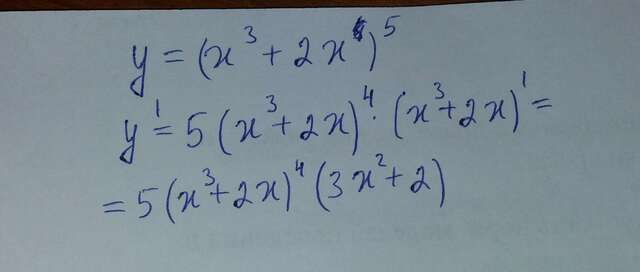 y = (x³ + 2x)⁵
y' = 5(x³ + 2x)⁴ · (x³ + 2x)' =
= 5(x³ + 2x)⁴ (3x² + 2)